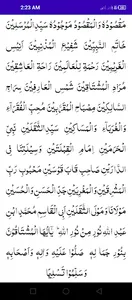 2:23 AM
مَقْصُوْدُهٗ وَالْمَقْصُوْدُ مَوْجُوْدُهٗ سَيِّدِ الْمُرْسَلِيْنَ
خَاتَمِ النَّبِيِّيْنَ شَفِيْعِ الْمُذْنِبِيْنَ اَنِيْسِ
الْغَرِيْبِيْنَ رَحْمَةٍ لِّلْعَالَمِيْنَ رَاحَةِ الْعَاشِقِيْنَ
مُرَادِ الْمُشْتَاقِيْنَ شَمْسِ الْعَارِفِيْنَ سِرَاجِ
السَّالِكِيْنَ مِصْبَاحِ الْمُقَرَّبِيْنَ مُحِبِّ الْفُقَرَآءِ
وَالْغُرَبَآءِ وَالْمَسَاكِيْنَ سَيِّدِ الثَّقَلَيْنِ نَبِيِّ
الْحَرَمَيْنِ اِمَامِ الْقِبْلَتَيْنِ وَسِيْلَتِنَا فِي
الدَّارَيْنِ صَاحِبِ قَابَ قَوْسَيْنِ مَحْبُوْبِ رَبِّ
الْمَشْرِقَيْنِ وَالْمَغْرِبَيْنِ جَدِّ الْحَسَنِ وَالْحُسَيْنِ
مَوْلَانَا وَمَوْلَى الثَّقَلَيْنِ اَبِي الْقَاسِمِ مُحَمَّدِ ابْنِ
عَبْدِ اللهِ نُوْرٍ مِّنْ نُوْرِ اللهِ يَآ اَيُّهَا الْمُشْتَاقُوْنَ
بِنُوْرِ جَمَالِهٖ صَلُّوْا عَلَيْهِ وَاٰلِهٖ وَاَصْحَابِهٖ
وَسَلِّمُوْا تَسْلِيْمًا